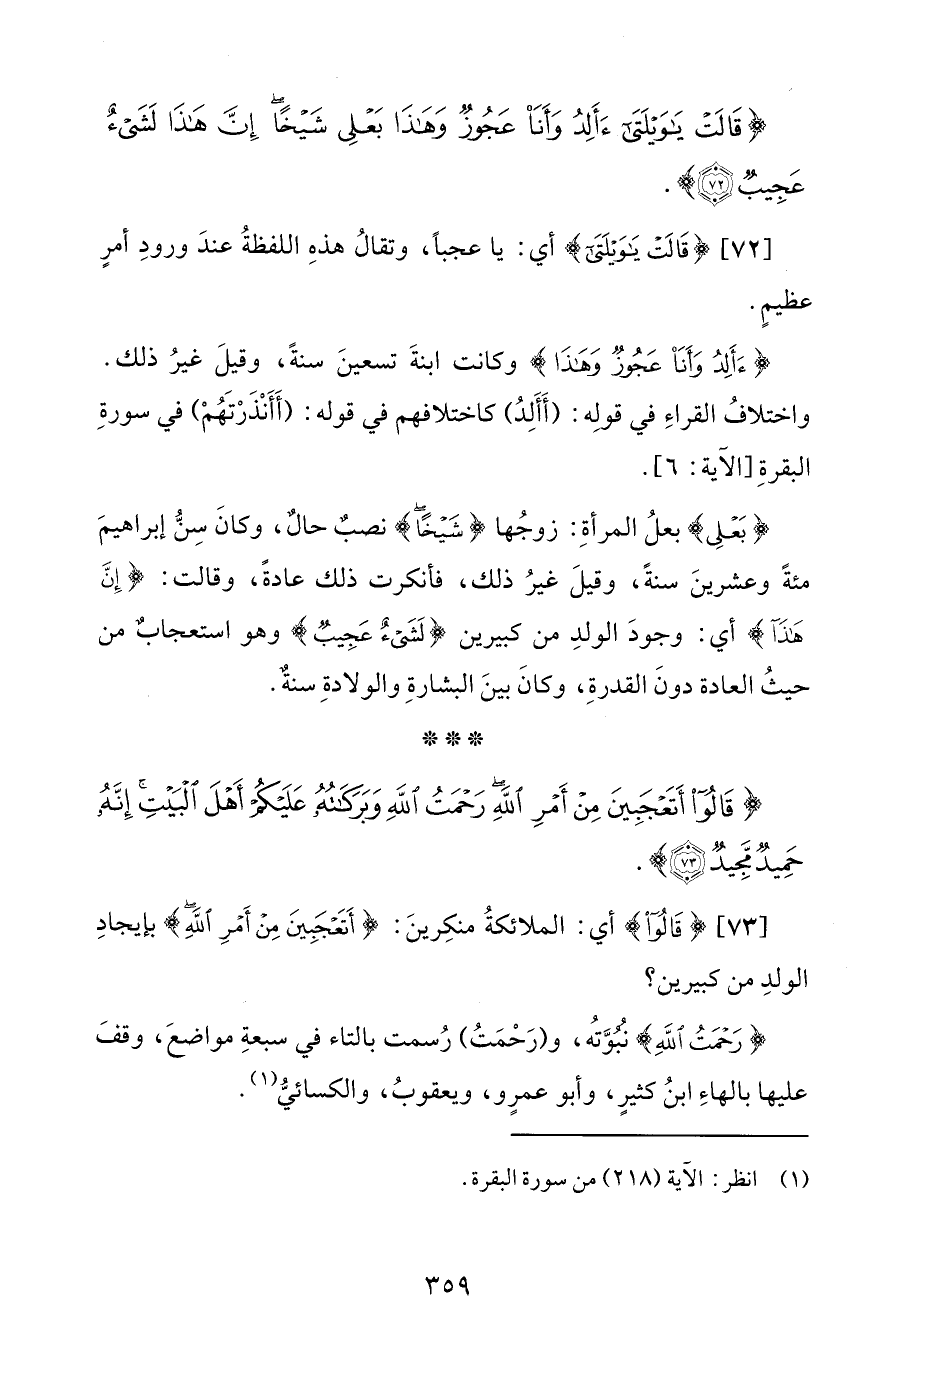 ﴿ قَالَتْ يَٰوَيْلَتَىٰٓ ءَأَلِدُ وَأَنَا۠ عَجُوزٌ وَهَٰذَا بَعْلِى شَيْخًا ۖ إِنَّ هَٰذَا لَشَىْءٌ
عَجِيبٌ ﴿٧٢﴾ ﴾ .
[٧٢] ﴿ قَالَتْ يَٰوَيْلَتَىٰٓ ﴾ أي: يا عجباً، وتقالُ هذهِ اللفظةُ عندَ ورودِ أمرٍ
عظيمٍ.
﴿ ءَأَلِدُ وَأَنَا۠ عَجُوزٌ وَهَٰذَا ﴾ وكانت ابنةَ تسعينَ سنةً، وقيلَ غيرُ ذلك.
واختلافُ القراءِ في قولِه: (أَأَلِدُ) كاختلافهم في قوله: (أَأَنْذَرْتَهُمْ) في سورةِ
البقرةِ [الآية: ٦].
﴿ بَعْلِى ﴾ بعلُ المرأةِ: زوجُها ﴿ شَيْخًا ۖ ﴾ نصبٌ حالٌ، وكانَ سِنُّ إبراهيمَ
مئةً وعشرينَ سنةً، وقيلَ غيرُ ذلك، فأنكرت ذلك عادةً، وقالت: ﴿ إِنَّ
هَٰذَآ ﴾ أي: وجودَ الولدِ من كبيرين ﴿ لَشَىْءٌ عَجِيبٌ ﴾ وهو استعجابٌ من
حيثُ العادة دونَ القدرةِ، وكانَ بينَ البشارةِ والولادةِ سنةٌ.
* * *
﴿ قَالُوٓا۟ أَتَعْجَبِينَ مِنْ أَمْرِ ٱللَّهِ ۖ رَحْمَتُ ٱللَّهِ وَبَرَكَٰتُهُۥ عَلَيْكُمْ أَهْلَ ٱلْبَيْتِ ۚ إِنَّهُۥ
حَمِيدٌ مَّجِيدٌ ﴿٧٣﴾ ﴾ .
[٧٣] ﴿ قَالُوٓا۟ ﴾ أي: الملائكةُ منكِرينَ: ﴿ أَتَعْجَبِينَ مِنْ أَمْرِ ٱللَّهِ ۖ ﴾ بإيجادِ
الولدِ من كبيرين؟
﴿ رَحْمَتُ ٱللَّهِ ﴾ نُبُوَّتُه، و(رَحْمَتُ) رُسمت بالتاء في سبعةِ مواضعَ، وقفَ
عليها بالهاءِ ابنُ كثيرٍ، وأبو عمرٍو، ويعقوبُ، والكسائيُّ(١).
(١) انظر: الآية (٢١٨) من سورة البقرة.
٣٥٩